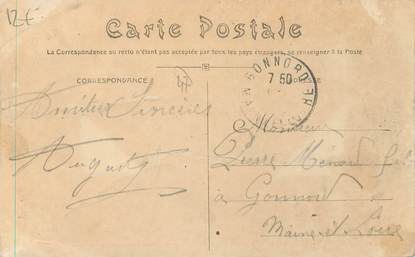 12€
Carte Postale
La Correspondance au recto n'étant pas acceptée par tous les pays étrangers, se renseigner à la Poste
CORRESPONDANCE
ADRESSE
GONNORD
7 50
Amitiés Sincères
Auguste
Monsieur
Pierre Ménard fils
à Gonnord
Maine et Loire